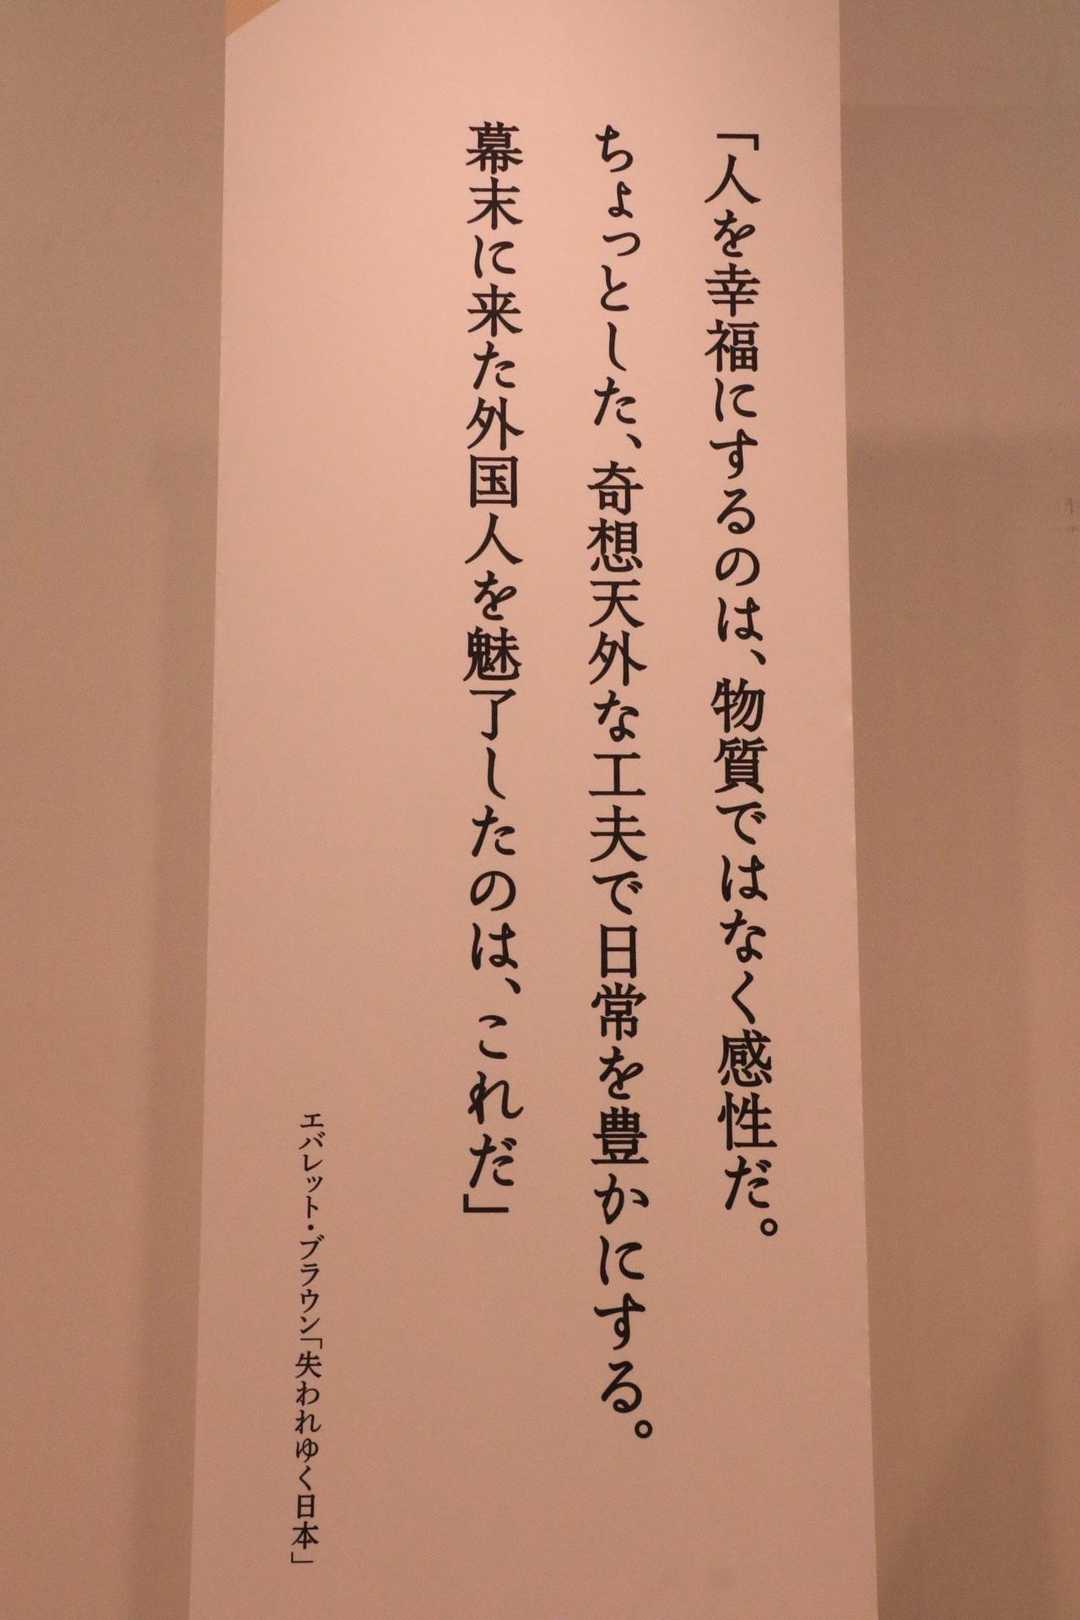 「人を幸福にするのは、物質ではなく感性だ。
ちょっとした、奇想天外な工夫で日常を豊かにする。
幕末に来た外国人を魅了したのは、これだ」
エバレット・ブラウン「失われゆく日本」